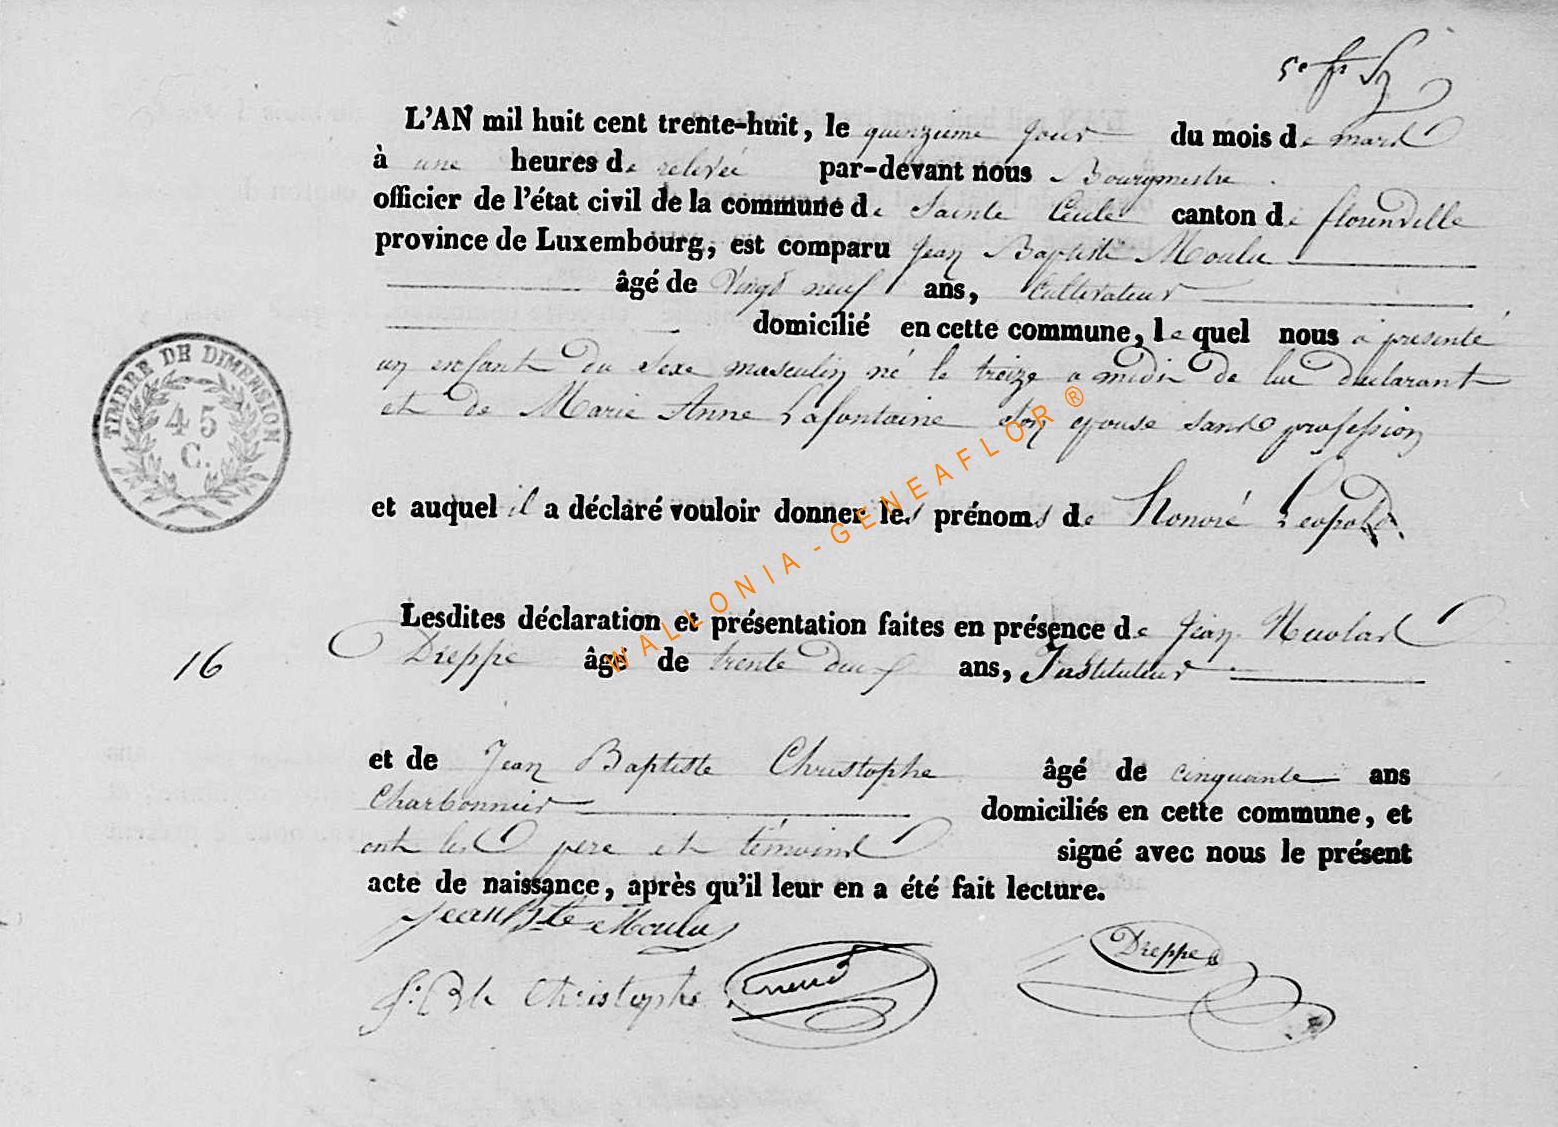 5e
L'AN mil huit cent trente-huit, le quinzieme jour du mois de mars
à une heures de relevée par-devant nous Bourgmestre
officier de l'état civil de la commune de Sainte Cecile canton de florenville
province de Luxembourg, est comparu Jean Baptiste Moulu
âgé de vingt neuf ans, Cultivateur
domicilié en cette commune, lequel nous a presenté
un enfant du sexe masculin né le treize a midi de lui declarant
et de Marie Anne Lafontaine son epouse sans profession
et auquel il a déclaré vouloir donner les prénoms de Honoré Leopold
Lesdites déclaration et présentation faites en présence de Jean Nicolas
16 Dreppe âgé de trente ans, Instituteur
et de Jean Baptiste Christophe âgé de cinquante ans
Charbonnier domiciliés en cette commune, et
ont les pere et témoins signé avec nous le présent
acte de naissance, après qu'il leur en a été fait lecture.
Jean Bte Moulu
Dreppe
J: Bte Christophe
TIMBRE DE DIMENSION
45
C.
WALLONIA-GENEAFLOR ®